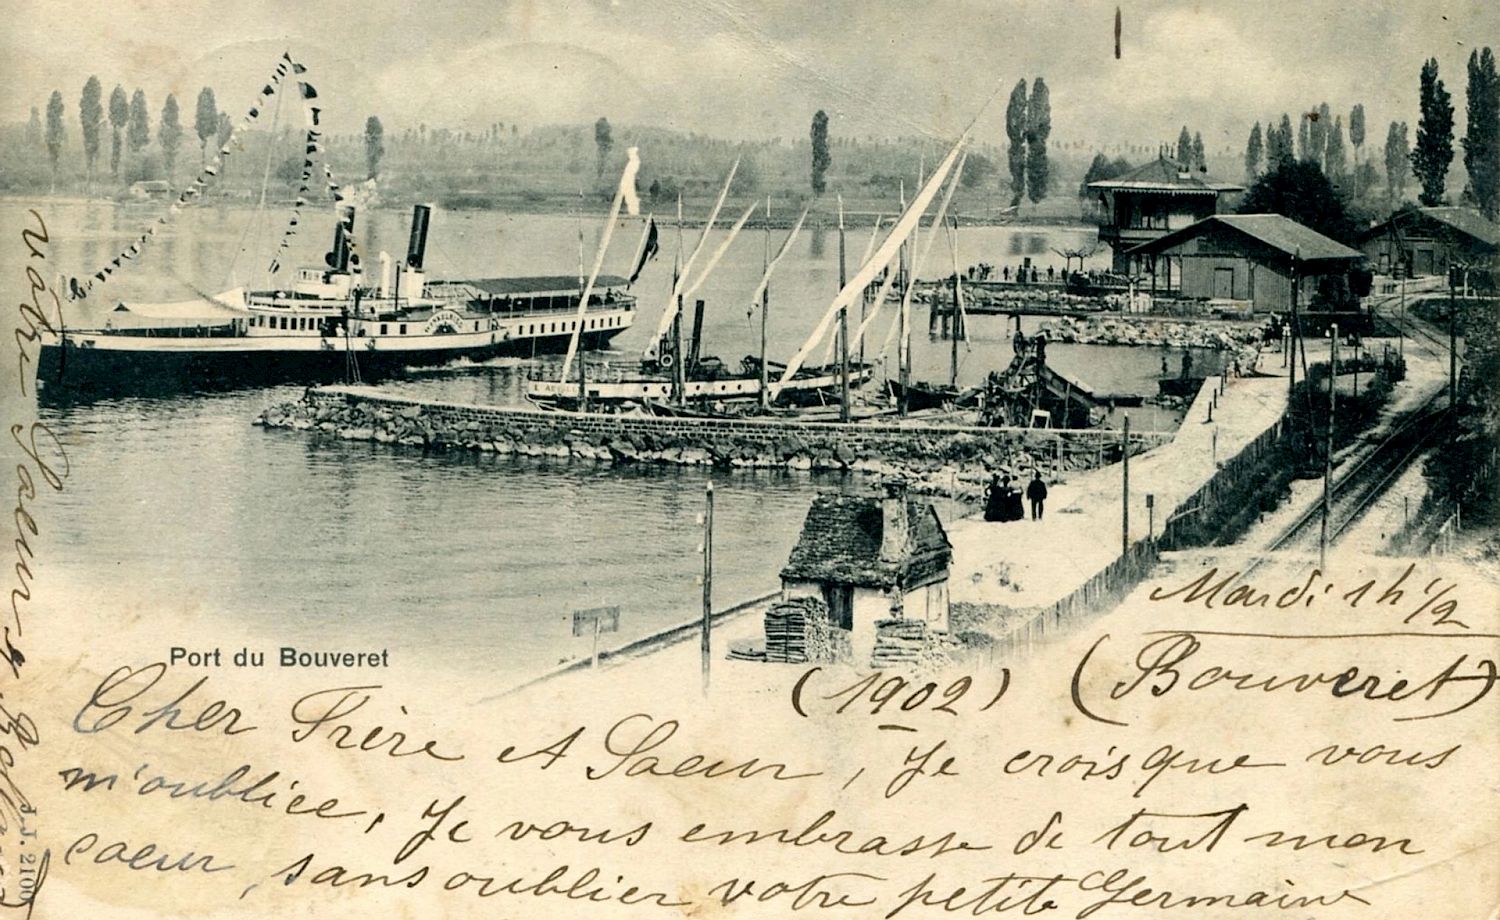 Port du Bouveret
Mardi 1h 1/2
(1902) (Bouveret)
Cher Frère et Soeur, Je crois que vous
m'oubliee, Je vous embrasse de tout mon
coeur, sans oublier votre petite Germaine
vôtre Soeur
J.J. 2100